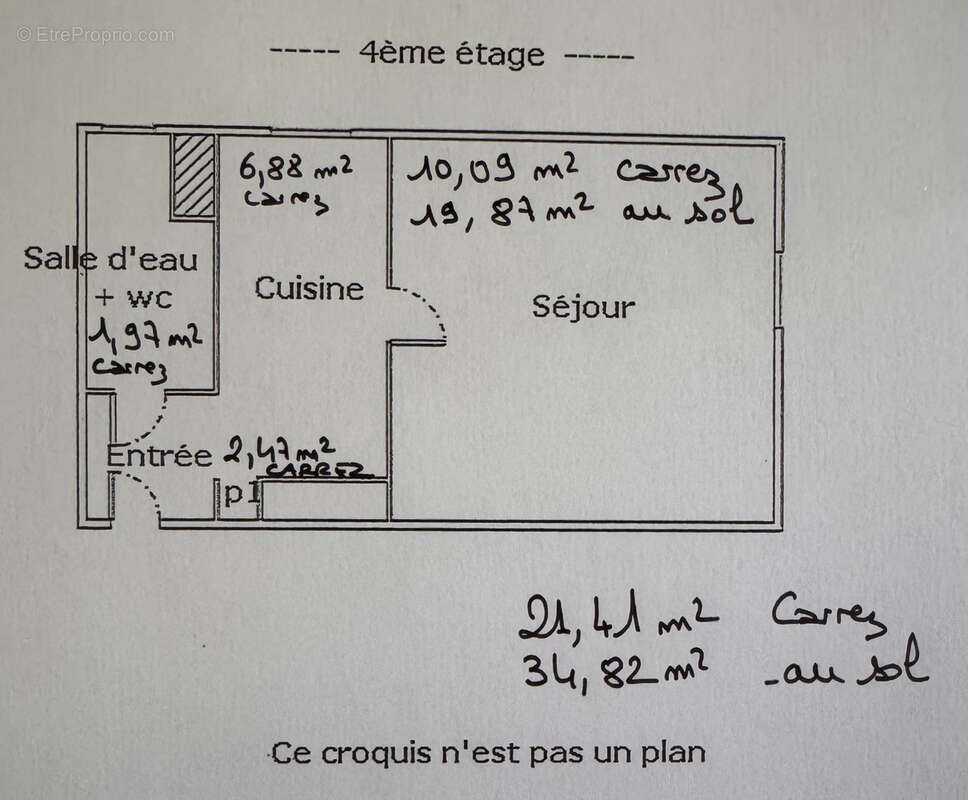 © EtreProprio.com
----- 4ème étage -----
6,88 m²
carrez
10,09 m² carrez
19,87 m² au sol
Salle d'eau
+ WC
1,97 m²
carrez
Cuisine
Séjour
Entrée 2,47 m²
CARREZ
pl
21,41 m² Carrez
34,82 m² - au sol
Ce croquis n'est pas un plan